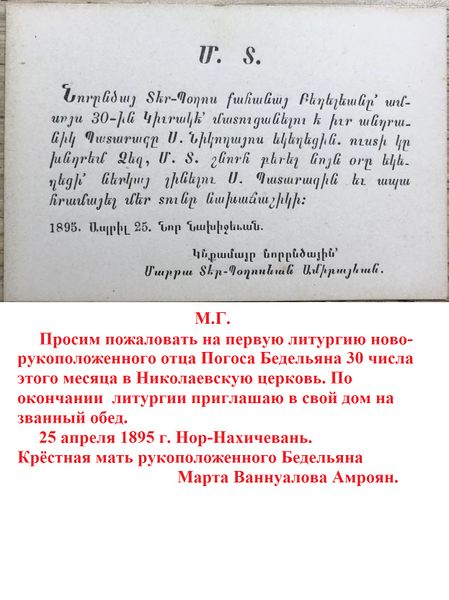 Մ. Տ.
Նորընծայ Տէր-Պօղոս քահանայ Բեդելեանը՝ ամ-
սոյս 30-ին Կիւրակէ՝ մատուցանելու է իւր անդրա-
նիկ Պատարագը Ս. Նիկողայոս եկեղեցին. ուստի կը
խնդրեմ Ձեզ, Մ. Տ. շնորհ բերել նոյն օրը եկե-
ղեցի՝ ներկայ լինելու Ս. Պատարագին եւ ապա
հրամայել մեր տունը նախաճաշիկի:
1895. Ապրիլ 25. Նոր Նախիջեւան.
Կնքամայր նորընծային՝
Մարթա Տէր-Պօղոսեան Ամիրայեան.
М.Г.
Просим пожаловать на первую литургию ново-
рукоположенного отца Погоса Бедельяна 30 числа
этого месяца в Николаевскую церковь. По
окончании литургии приглашаю в свой дом на
званный обед.
25 апреля 1895 г. Нор-Нахичевань.
Крёстная мать рукоположенного Бедельяна
Марта Ваннуалова Амроян.